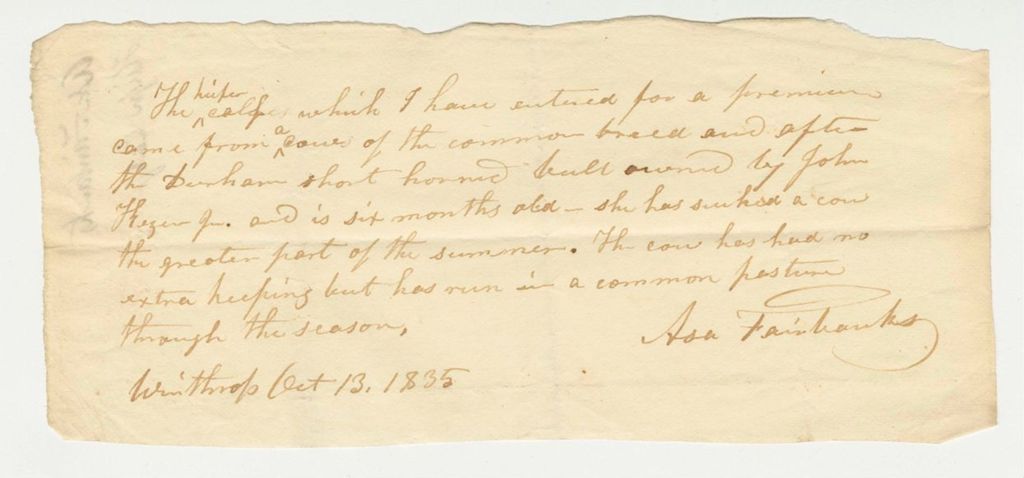 The heifer calf which I have entered for a premium
came from a cow of the common breed and after
the Durham short horned bull owned by John
Kezer Jr. and is six months old – she has sucked a cow
the greater part of the summer. The cow has had no
extra keeping but has run in a common pasture
through the season,
Asa Fairbanks
Winthrop Oct 13. 1835